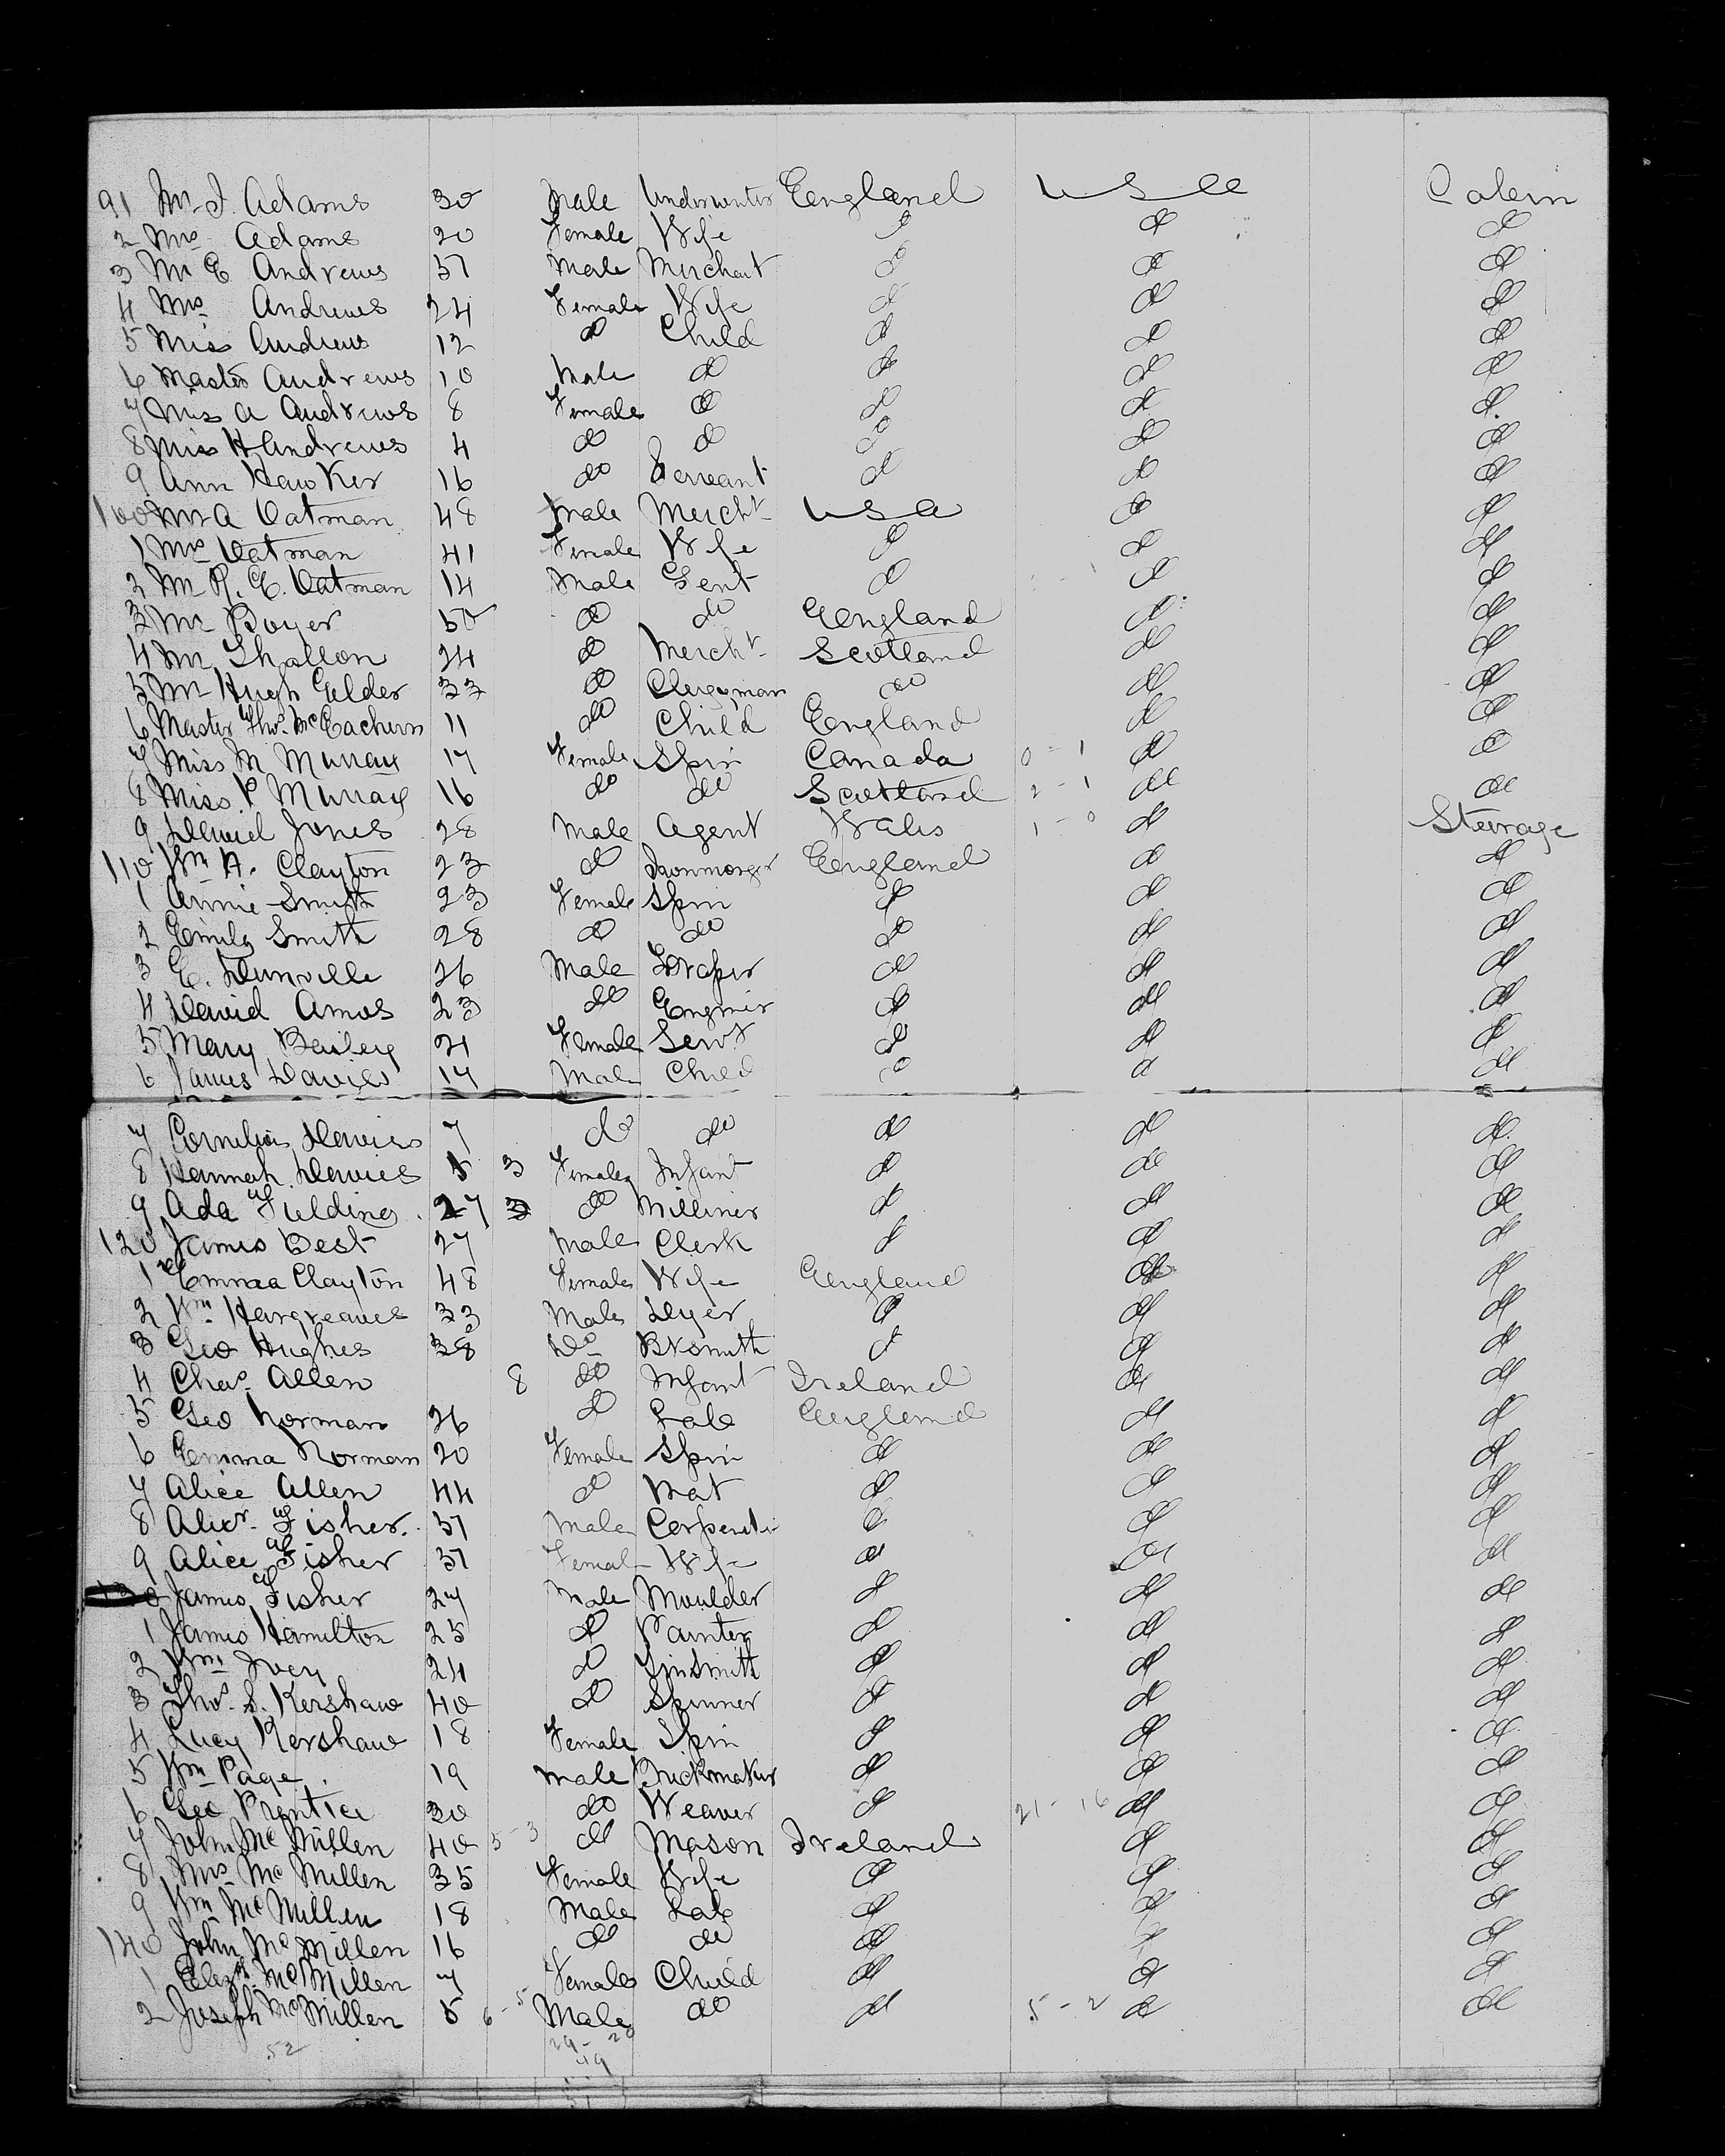 91 Mr J. Adams 30 Male Underwriter England U S A Cabin
2 Mrs Adams 20 Female Wife do do do
3 Mr E Andrews 37 Male Merchant do do do
4 Mrs Andrews 24 Female Wife do do do
5 Miss Andrews 12 do Child do do do
6 Master Andrews 10 Male do do do do
7 Miss A Andrews 8 Female do do do do
8 Miss H Andrews 4 do do do do do
9 Ann Hawker 16 do Servant do do do
100 Mr A Oatman 48 Male Mercht U S A do do
1 Mrs Oatman 41 Female Wife do do do
2 Mr R. E. Oatman 14 Male Gent do do do
3 Mr Boyer 50 do do England do do
4 Mr Shallon 24 do Mercht Scotland do do
5 Mr Hugh Gelder 33 do Clergyman do do do
6 Master Thos. McEachern 11 do Child England do do
7 Miss M Murray 17 Female Spin Canada 0 - 1 do do
8 Miss P Murray 16 do do Scotland 2 - 1 do do
9 David Jones 28 Male Agent Wales 1 - 0 do Steerage
110 Wm H. Clayton 23 do Ironmonger England do do
1 Annie Smith 23 Female Spin do do do
2 Emily Smith 28 do do do do do
3 E. Dunville 26 Male Draper do do do
4 David Amos 23 do Enginir do do do
5 Mary Bailey 21 Female Servt do do do
6 James Davies 14 Male Child do do do
7 Cornelius Davies 7 do do do do do
8 Hannah Davies 3 Female Infant do do do
9 Ada Fielding 27 do Milliner do do do
120 James Best 27 Male Clerk do do do
1 Emma Clayton 48 Female Wife England do do
2 Wm Hargreaves 33 Male Dyer do do do
3 Geo Hughes 38 Do Bksmith do do do
4 Chas. Allen 8 do Infant Ireland do do
5 Geo Norman 26 do Lab England do do
6 Emma Norman 20 Female Spin do do do
7 Alice Allen 44 do Mat do do do
8 Alexr. Fisher 37 Male Carpenter do do do
9 Alice Fisher 37 Female Wife do do do
0 James Fisher 27 Male Moulder do do do
1 James Hamilton 25 do Painter do do do
2 Wm Ivey 24 do Tinsmith do do do
3 Thos. S. Kershaw 40 do Spinner do do do
4 Lucy Kershaw 18 Female Spin do do do
5 Wm Page 19 Male Brickmaker do do do
6 Geo Prentice 30 do Weaver do 21 - 16 do do
7 John McMillen 40 5 - 3 do Mason Ireland do do
8 Mrs McMillen 35 Female Wife do do do
9 Wm McMillen 18 Male Lab do do do
140 John McMillen 16 do do do do do
1 Elizth McMillen 7 Female Child do do do
2 Joseph McMillen 5 6 - 5 Male do do 5 - 2 do do
52 29 - 20
49